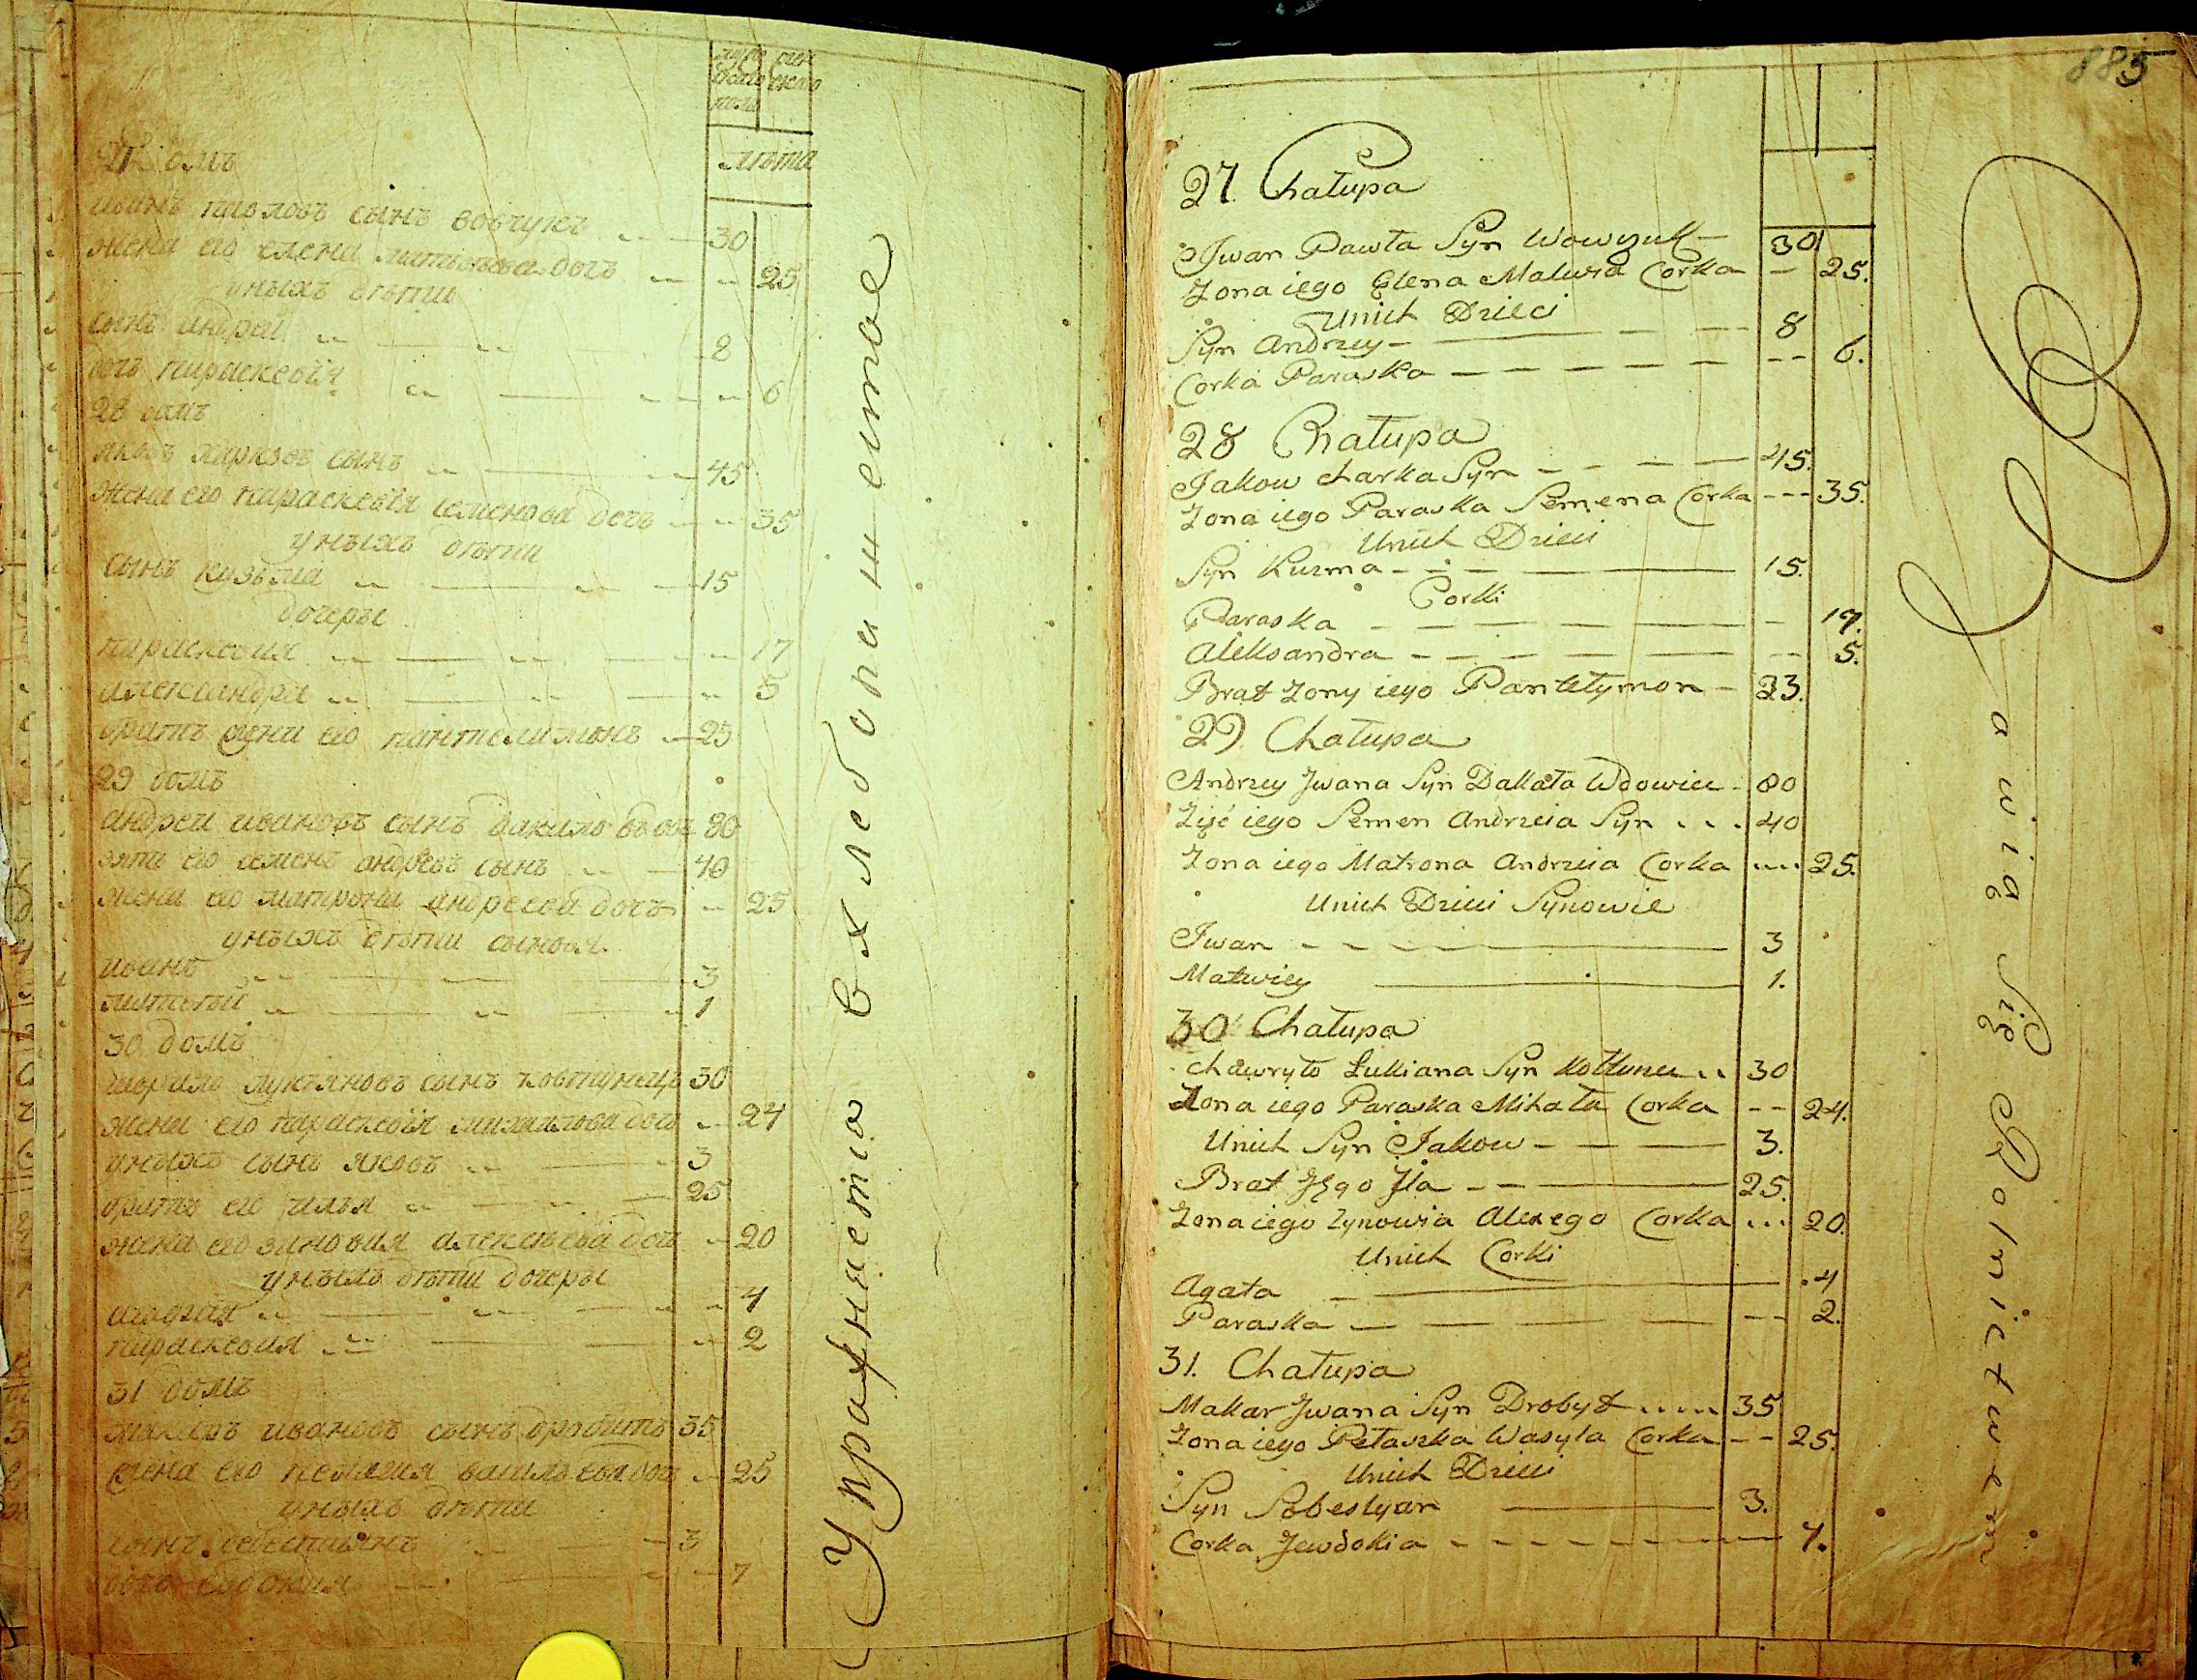 муже
ского
пола
жен
ского
лѣта
27 домъ
иванъ павловъ сынъ вовчукъ 30
жена его елена матвѣева дочъ 25
унихъ дѣти
сынъ андрей 8
дочъ параскевія 6
28 домъ
яковъ харковъ сынъ 45
жена его параскевія семенова дочъ 35
унихъ дѣти
сынъ кузьма 15
дочеры
параскевия 17
александра 5
братъ жени его пантелимонъ 23
29 домъ
андрей ивановъ сынъ дакало вдовъ 80
зять его семенъ андреевъ сынъ 40
жена его матрона андреева дочъ 25
унихъ дѣти сыновя
иванъ 3
матвѣй 1
30 домъ
гаврило лукяновъ сынъ ковтунецъ 30
жена его параскевія михайлова дочъ 24
унихъ сынъ яковъ 3
братъ его илья 25
жена его зиновия алексѣева дочъ 20
унихъ дѣти дочеры
агафия 4
параскевия 2
31 домъ
макаръ ивановъ сынъ дробитъ 35
жена его пелагия василъева дочъ 25
унихъ дѣти
сынъ себестиянъ 3
дочъ евдокия 7
Упражняется в хлебопашестве
885
27. Chałupa
Jwan Pawła Syn Wowczuk 30
Zona iego Elena Matwia Corka 25.
Unich Dzieci
Syn Andrzey 8
Corka Paraska 6.
28 Chałupa
Jakow Charka Syn 45.
Zona iego Paraska Semena Corka 35.
Unich Dzieci
Syn Kuzma 15.
Corki
Paraska 17.
Aleksandra 5.
Brat Zony iego Pantelymon 23.
29 Chałupa
Andrzey Jwana Syn Dakała Wdowiec 80
Zięć iego Semen Andrzeia Syn 40
Zona iego Matrona Andrzeia Corka 25.
Unich Dzieci Synowie
Jwan 3
Matwiey 1.
30 Chałupa
Chawryło Łukiana Syn Kottunec 30
Zona iego Paraska Mihała Corka 24.
Unich Syn Jakow 3.
Brat Jego Jla 25.
Zona iego Zynowia Alexego Corka 20.
Unich Corki
Agata 4
Paraska 2.
31. Chałupa
Makar Jwana Syn Drobyt 35
Zona iego Pełaszka Wasyla Corka 25.
Unich Dzieci
Syn Sobestyan 3.
Corka Jewdokia 7.
Bawią Się Rolnictwem